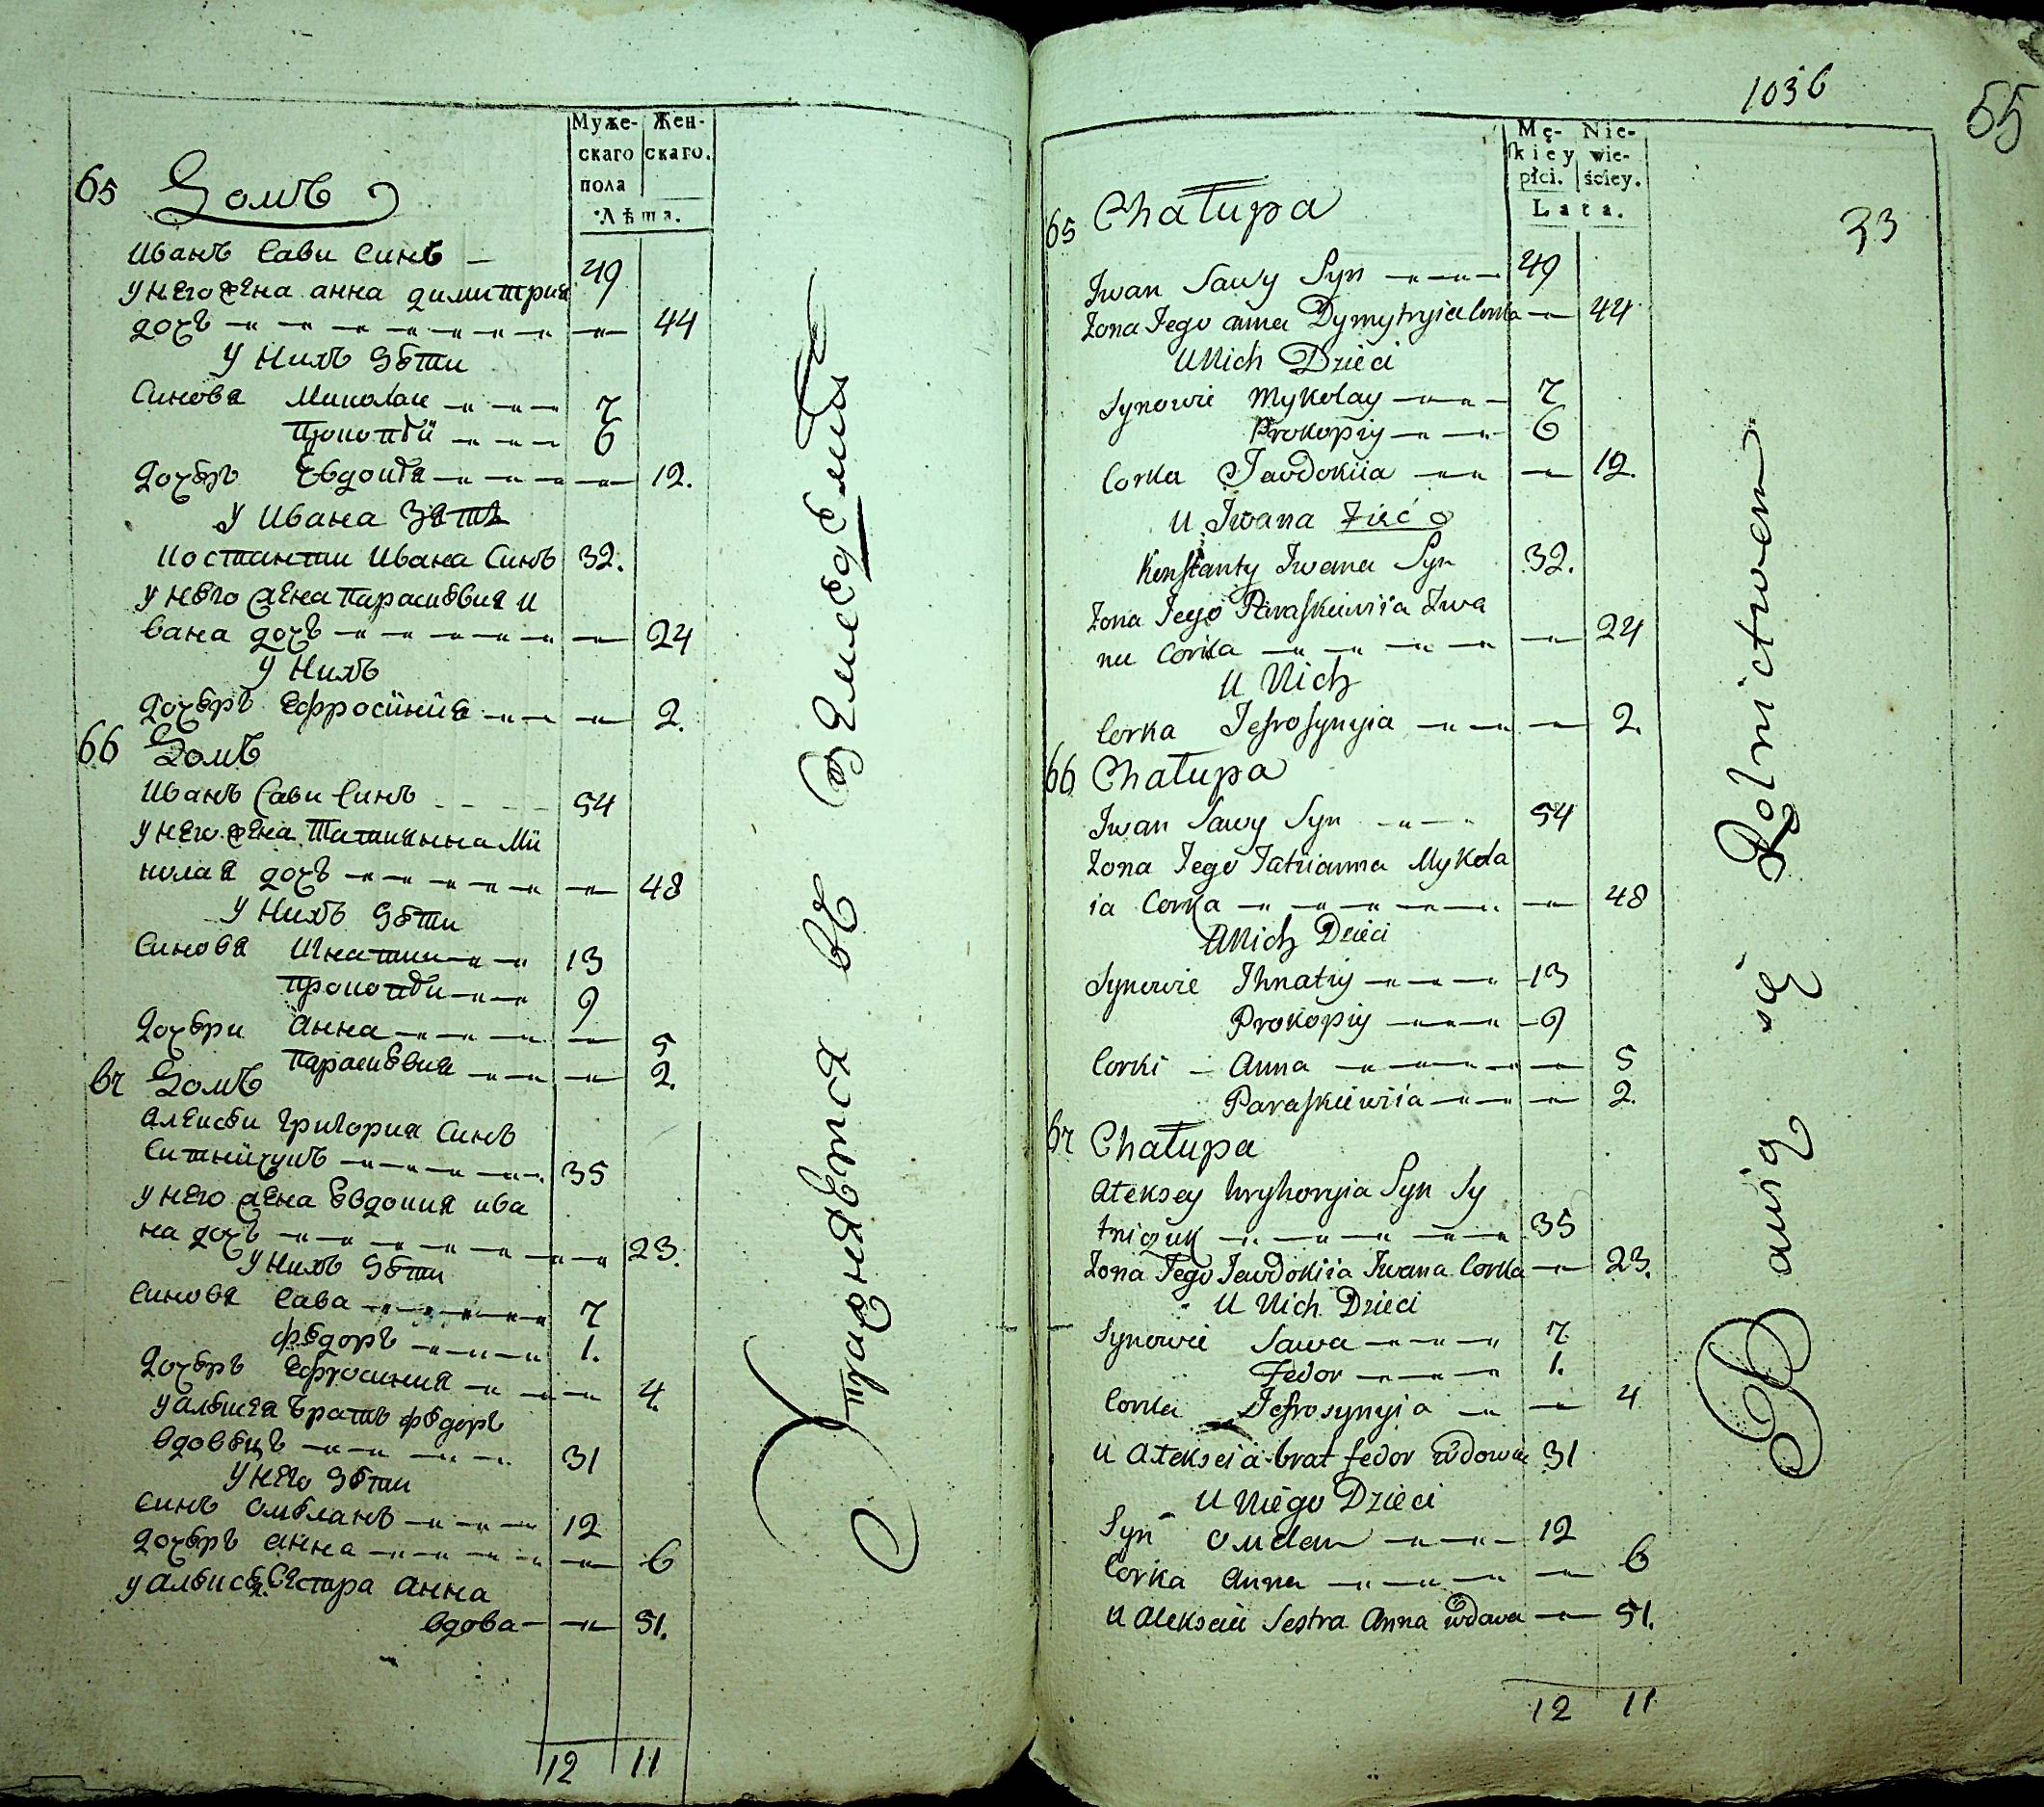 Муже-
скаго
пола
Жен-
скаго.
Лѣта.
65 Домъ
Иванъ Сави Синъ 49
У него жена анна димитрия
дочъ 44
У нихъ дѣти
Синовя Миколаи 7
Прокопѣй 6
Дочѣръ Евдокѣя 12.
У Ивана Зять
Костантин Ивана Синъ 32.
У него жена Параскѣвия И
вана дочъ 24
У нихъ
Дочѣръ Ефросинія 2.
66 Домъ
Иванъ Сави Синъ 54
У него жена Татиянна Ми
колая дочъ 48
У нихъ дѣти
Синовя Игнатии 13
Прокопѣи 9
Дочѣри Анна 5
Параскѣвия 2.
67 Домъ
Алексѣи Григория Синъ
Ситничукъ 35
У него жена Евдокия ива
на дочъ 23.
У нихъ дѣти
Синовя Сава 7
Фѣдоръ 1.
Дочѣръ Ефросиния 4.
У Алѣксея братъ Фѣдоръ
вдовѣцъ 31
У него дѣти
Синъ Омѣланъ 12
Дочѣръ Анна 6
У Алѣксѣя Сестра Анна
вдова 51.
12 11
Упражняется въ Земледѣлиѣ
1036
55
33
Mę-
skiey
płci.
Nie-
wie-
ściey.
Lata.
65 Chałupa
Jwan Sawy Syn 49
Zona Jego anna Dymytryia Corka 44
U Nich Dzieci
Synowie Mykolay 7
Prokopiy 6
Corka Jawdokiia 12.
U Jwana Zięć
Konstanty Jwana Syn 32.
Zona Jego Paraskiewiia Jwa
na Corka 24
U Nich
Corka Jefrosynyia 2.
66 Chałupa
Jwan Sawy Syn 54
Zona Jego Tatiianna Mykola
ia Corka 48
U Nich Dzieci
Synowie Ihnatiy 13
Prokopiy 9
Corki Anna 5
Paraskiewiia 2.
67 Chałupa
Ałeksey hryhoryia Syn Sy
tniczuk 35
Zona Jego Jawdokiia Jwana Corka 23.
U Nich Dzieci
Synowie Sawa 7
Fedor 1.
Corka Jefrosynyia 4
U Ałekseia brat fedor wdowiec 31
U Niego Dzieci
Syn Omelan 12
Corka Anna 6
U Alekseia Sestra Anna wdowa 51.
12 11
Bawią się Rolnictwem